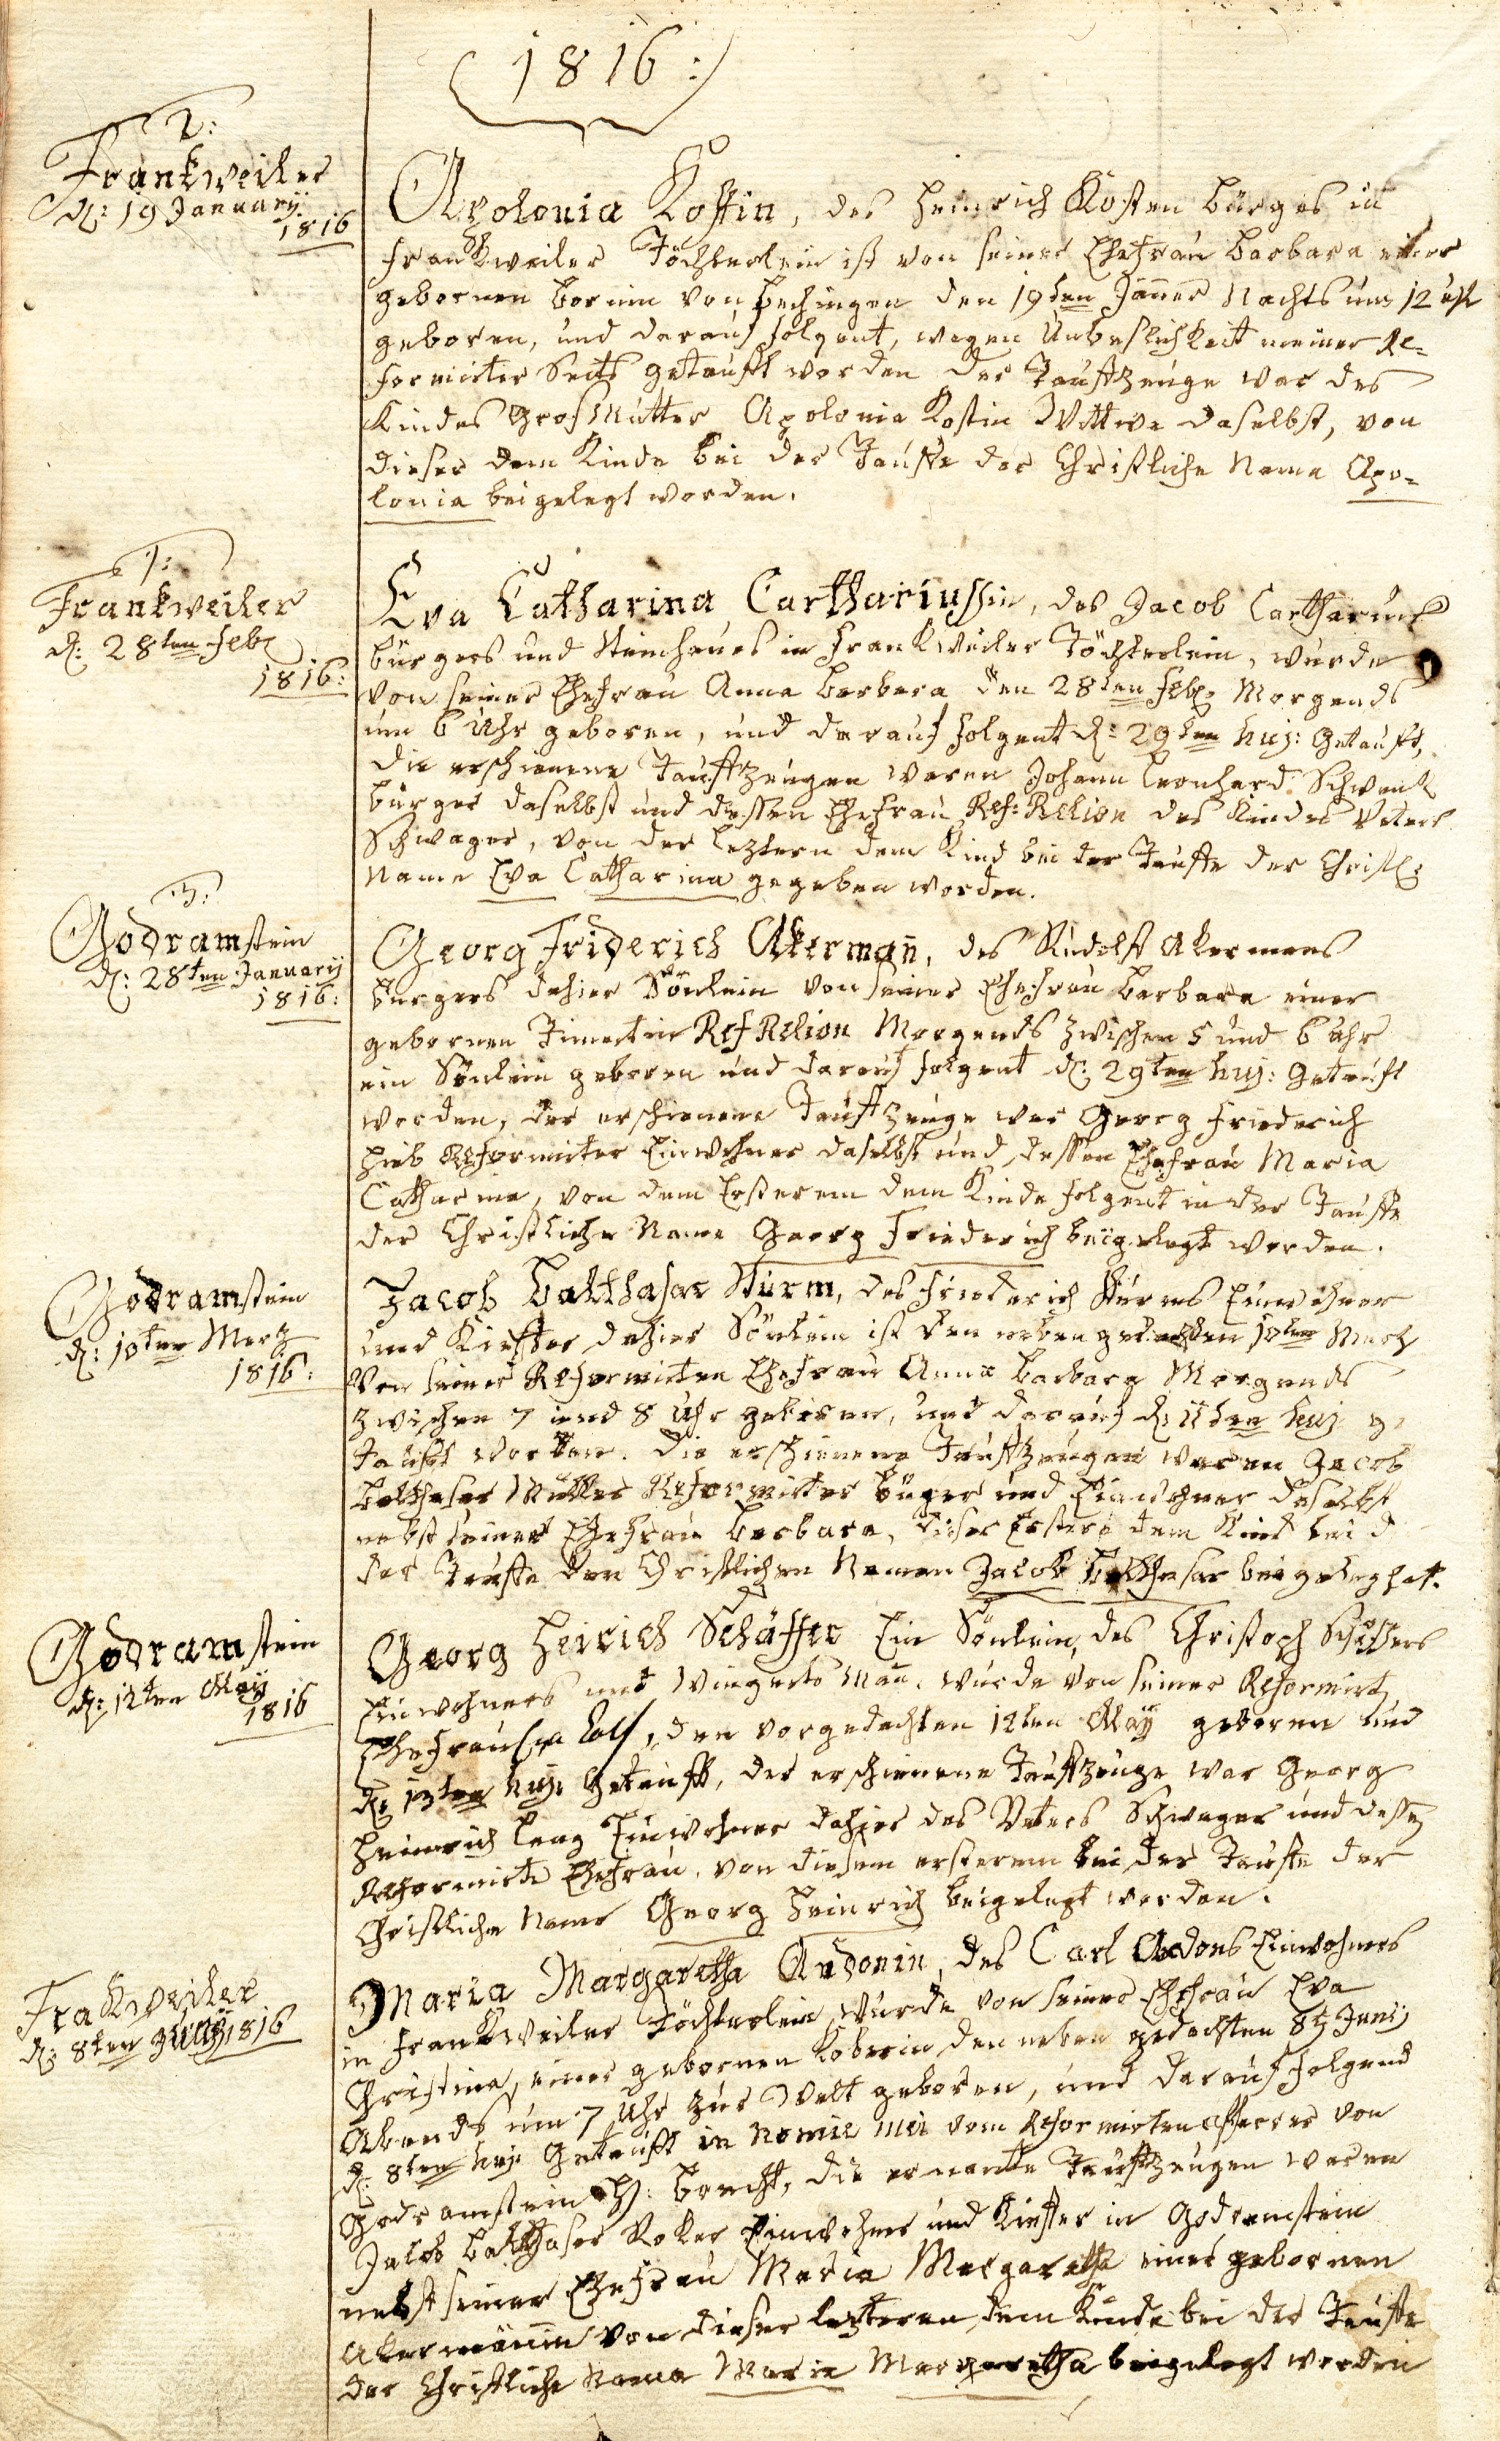 (1816:)
2:
Frankweiler
d: 19 January
1816
Apolonia Kostin, des Heinrich Kosten burgers in
Frankweiler Töchterlein ist von seiner Ehefrau Barbara einer
gebornen von Bechingen den 19ten Jäner Nachts um 12 uhr
geboren, und darauf folgent, wegen Unbeslichkeit meiner Re=
formirter Seits getauft worden der Taufzeuge war des
Kindes Grosmutter Apolonia Kostin Wittwe daselbst, von
dieser dem Kinde bei der Tauffe der Christliche Name Apo=
lonia beigelegt worden.
1:
Frankweiler
d: 28ten Feb:
1816:
Eva Catharina Carthariussin, des Jacob Cartharius
burgers und Steinhauers in Frankweiler Töchterlein, wurde
von seiner Ehefrau Anna Barbara den 28ten Feb: Morgends
um 6 Uhr geboren, und darauf folgent d: 29ten huj: Getauft,
die erschienene Taufzeugen waren Johann Leonhard Schwenk
burger daselbst und dessen Ehefrau Ref: Relion des Kindes Vaters
Schwager, von der leztern dem Kind bei der Tauffe der Christl:
Name Eva Catharina gegeben worden.
3:
Godramstein
d: 28ten January
1816:
Georg Friderich Akermañ, des Rudolf Akermans
burgers dahier Sönlein von seiner Ehefrau Barbara einer
gebornen Ref Relion Morgends zwischen 5 und 6 Uhr
ein Sönlein geboren und darauf folgent d: 29ten huj: Getauft
worden, der erschienene Taufzeuge war Georg Friederich
Hieb Reformirter Einwohner daselbst und dessen Ehefrau Maria
Catharina, von dem Ersterem dem Kinde folgent in der Tauffe
der Christliche Name Georg Friederich beigelegt worden.
Godramstein
d: 10ten Mertz
1816:
Jacob Balthasar Sturm, des Friederich Sturms Einwohner
und Kieffer dahier Sönlein ist den neben gedachten 10ten Mertz
Von seiner Reformirten Ehefrau Anna Barbara Morgends
zwischen 7 und 8 Uhr geboren, und darauf d: 11ten huj ge
Tauft worden. Die erschienene Taufzeugen waren Jacob
Balthasar Müller Reformirter Bürger und Einwohner daselbst
nebst seiner Ehefrau Barbara, dieser Erstere dem Kind bei d
der Tauffe den Christlichen Namen Jacob Balthasar beigelegt hat.
Godramstein
d: 12ten May
1816
Georg Heirich Schäffer Ein Sönlein, des Christoph Schäffers
Einwohners und Wingerts Mañ. wurde von seiner Reformirt
Ehefrau Eva, den vorgedachten 12ten May geboren und
d: 13ten huj: Getaufft, der erschienene Taufzeuge war Georg
Heinrich Lang Einwohner dahier des Vaters Schwager und dessen
Reformirte Ehefrau. von diesem ersterem bei der Tauffe der
Christliche Name Georg Heinrich beigelegt worden.
Frakweiler
d: 8ten 1816
Maria Margaretha Andonin, des Carl Andons Einwohners
in Frankweiler Töchterlein wurde von seiner Ehefrau Eva
Christina, einer gebornen Koberin den neben gedachten 8t Junij
Abends um 7 Uhr zur Welt geboren, und darauf folgend
d: 8ten huj: Getauft in nomie mei vom Reformirten Pfarrer von
Godramstein H: Brecht, die ernante Taufzeugen waren
Jacob Balthasar Roker Einwohner und Kieffer in Godramstein
nebst seiner Ehefrau Maria Margaretha einer gebornen
Akermännin von dieser letzteren dem Kinde bei der Tauffe
der Christliche Name Maria Margaretha beigelegt worden